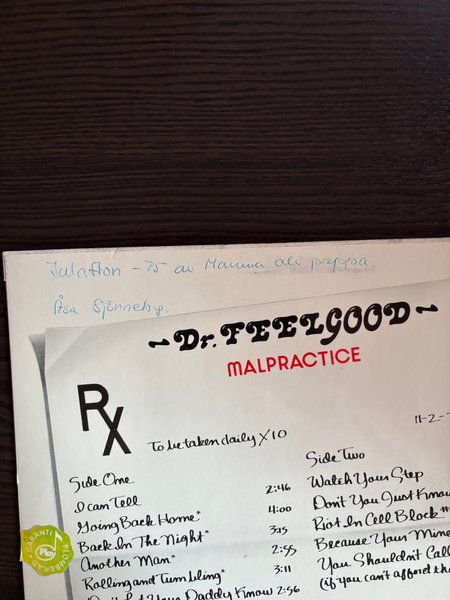 Julafton -75 av Mamma och pappa.
Åsa
~Dr. FEELGOOD~
MALPRACTICE
RX
To be taken daily X10
11-2-
Side One
I can Tell 2:46
Going Back Home* 4:00
Back In The Night* 3:15
Another Man* 2:55
Rolling and Tumbling* 3:11
Don't Let Your Daddy Know 2:56
Side Two
Watch Your Step
Don't You Just Know
Riot In Cell Block #
Because Your Mine
You Shouldn't Call
(if you can't afford th
GARANTI
Play
PLOMBERAD